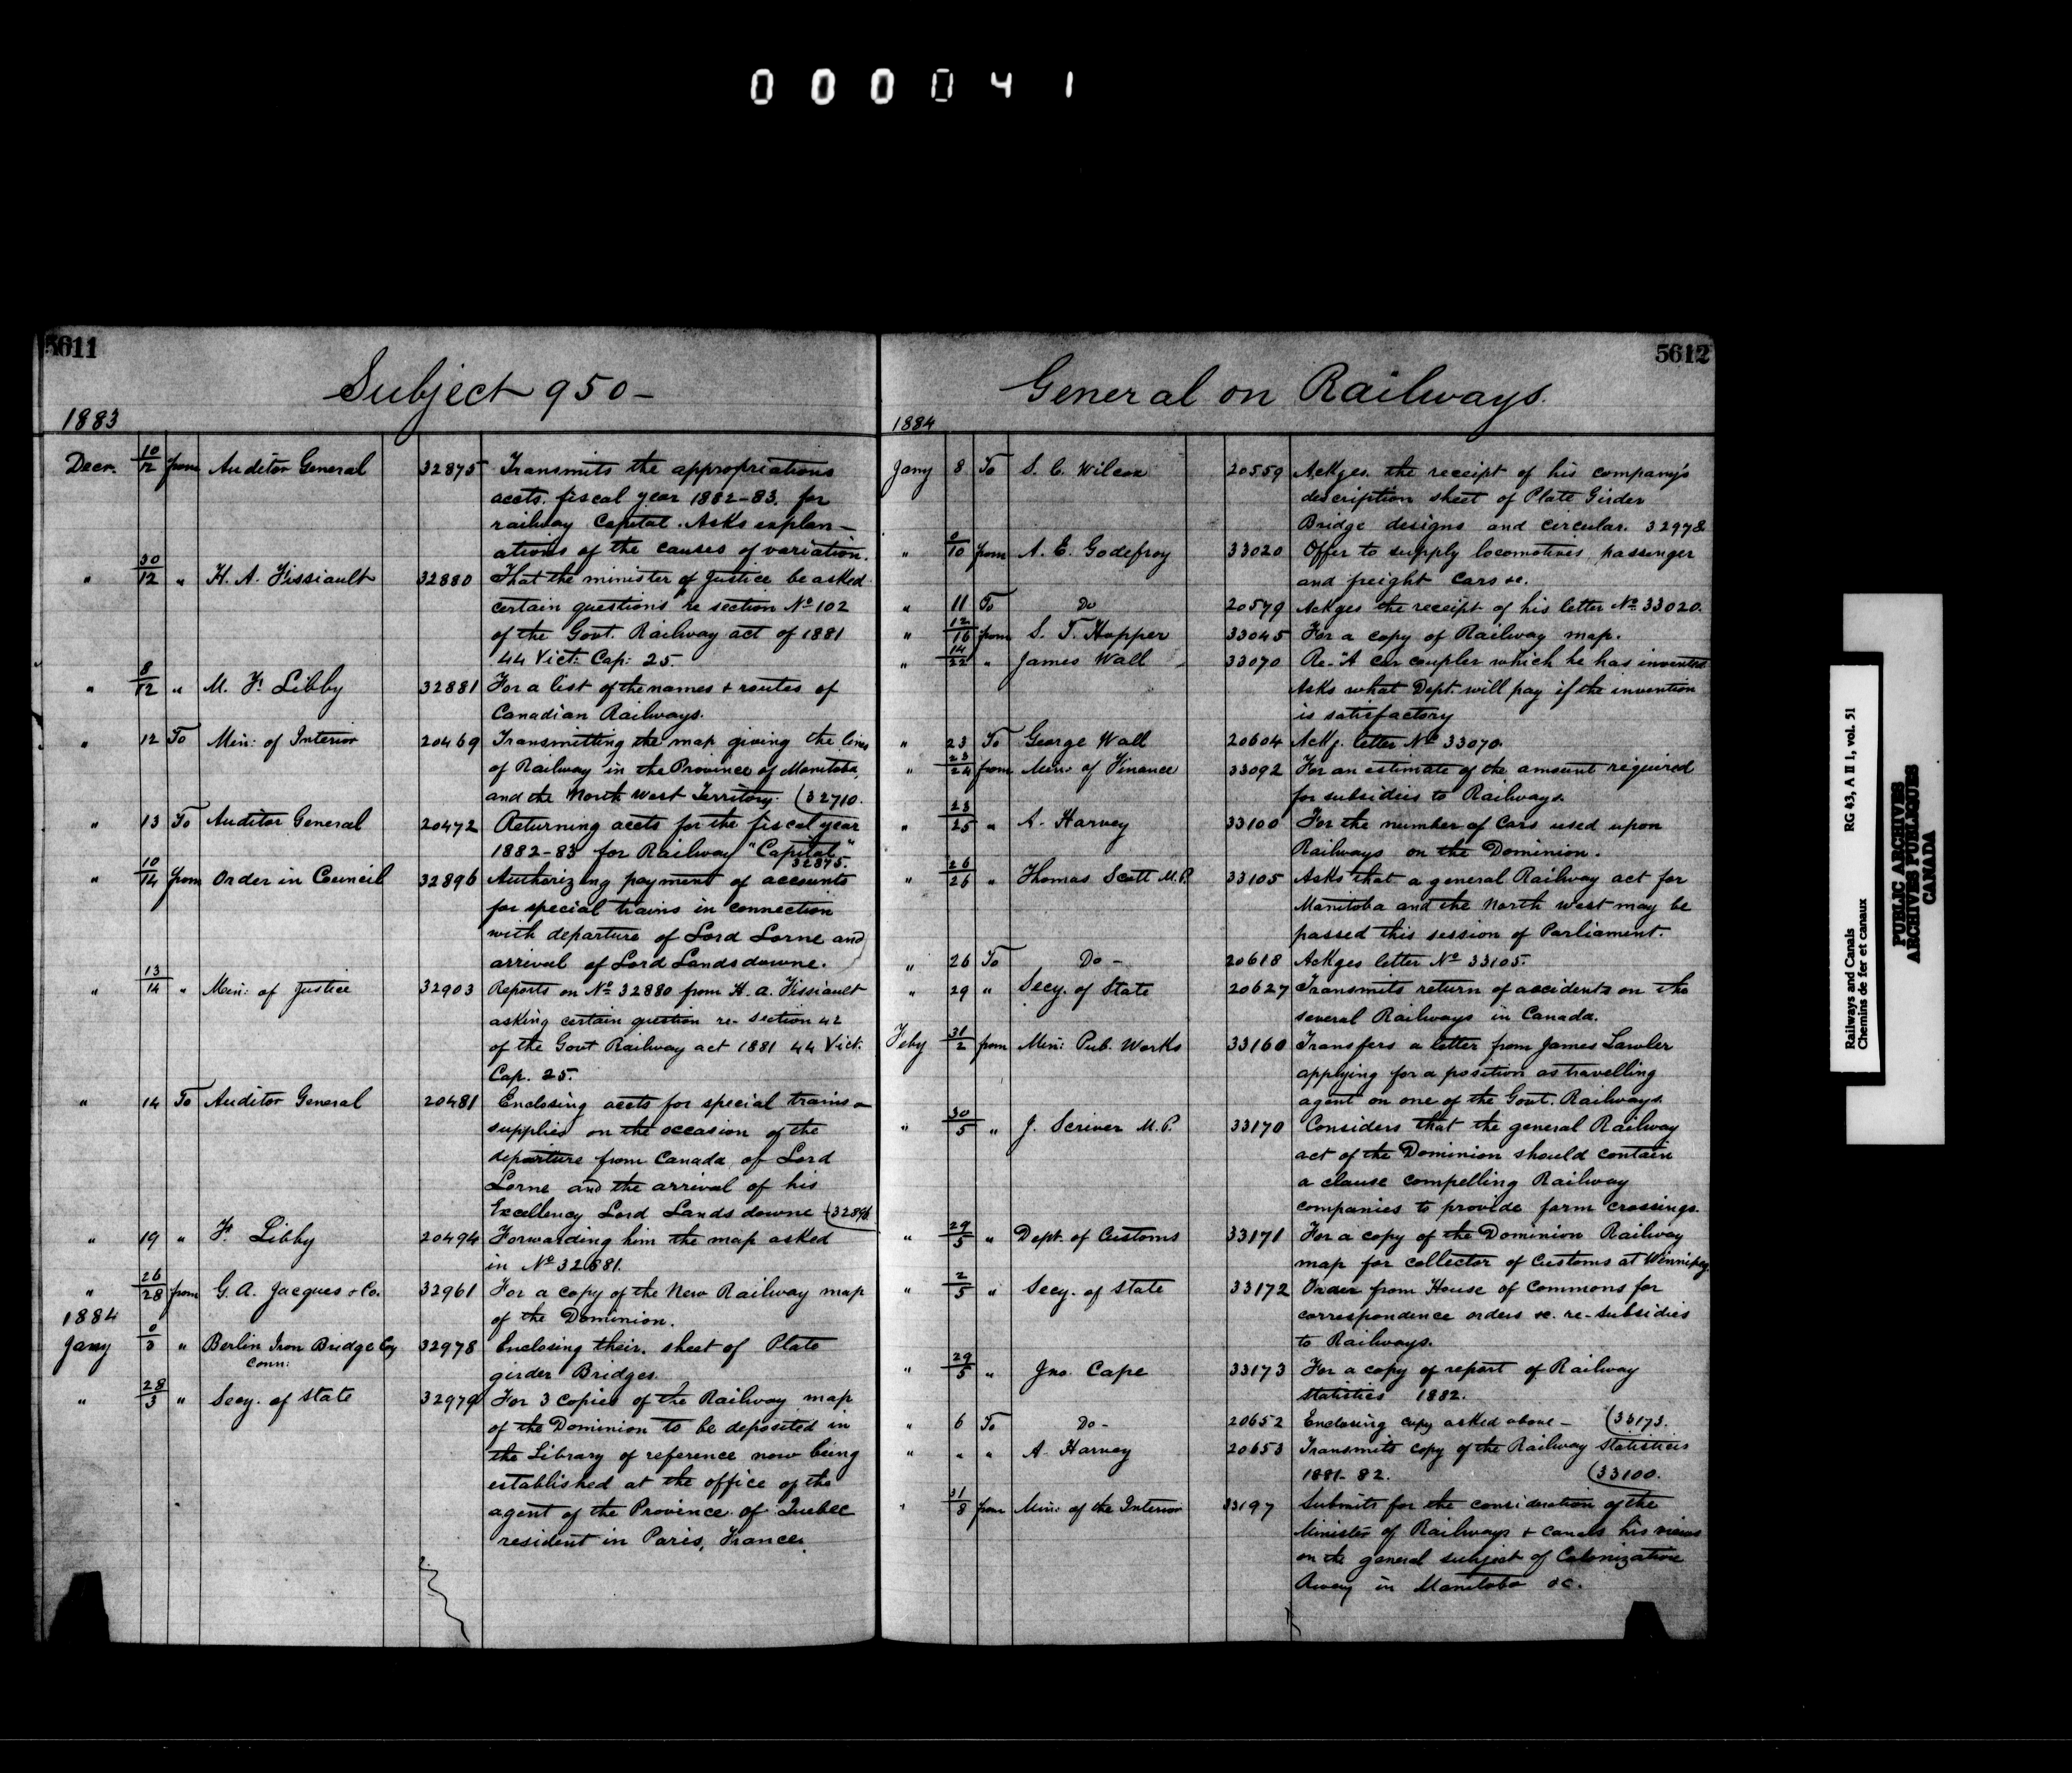 000041
5611
Subject 950 -
1883
Decr. 10/12 from Auditor General 32875 Transmits the appropriations
accts. fiscal year 1882-83. for
railway Capital. Asks explan-
ations of the causes of variation.
" 30/12 " H. A. Fissiault 32880 That the minister of Justice be asked
certain questions re section No 102
of the Govt. Railway act of 1881
44 Vict: Cap: 25.
" 8/12 " M. F. Libby 32881 For a list of the names + routes of
Canadian Railways.
" 12 To Min: of Interior 20469 Transmitting the map giving the lines
of Railway in the Province of Manitoba,
and the North West Territory. (32710.
" 13 To Auditor General 20472 Returning accts for the fiscal year
1882-83 for Railway "Capital"
32875.
" 10/14 from Order in Council 32896 Authorizing payment of accounts
for special trains in connection
with departure of Lord Lorne and
arrival of Lord Landsdowne.
" 13/14 " Min: of Justice 32903 Reports on No 32880 from H. A. Fissiault
asking certain question re- section 42
of the Govt Railway act 1881 44 Vict:
Cap. 25.
" 14 To Auditor General 20481 Enclosing accts for special trains
supplied on the occasion of the
departure from Canada, of Lord
Lorne and the arrival of his
Excellency Lord Landsdowne (32896
" 19 " F. Libby 20494 Forwarding him the map asked
in No 32881.
" 26/28 from G. A. Jacques & Co. 32961 For a copy of the New Railway map
of the Dominion.
1884
Jany 0/3 " Berlin Iron Bridge Coy 32978 Enclosing their sheet of Plate
Conn: girder Bridges.
" 28/3 " Secy. of State 32979 For 3 copies of the Railway map
of the Dominion to be deposited in
the Library of reference now being
established at the office of the
agent of the Province of Quebec
resident in Paris, France.
5612
General on Railways.
1884
Jany 8 To S. C. Wilcox 20559 Ackges. the receipt of his company's
description sheet of Plate Girder
Bridge designs and circular. 32978
" 0/10 from A. E. Godefroy 33020 Offer to supply locomotives, passenger
and freight Cars &c.
" 11 To Do 20579 Ackges the receipt of his letter No 33020.
" 12/16 from S. T. Hopper 33045 For a copy of Railway map.
" 14/22 " James Wall 33070 Re- "A car coupler which he has invented
Asks what Dept. will pay if the invention
is satisfactory
" 23 To George Wall 20604 Ackg. letter No 33070.
" 23/24 from Min: of Finance 33092 For an estimate of the amount required
for subsidies to Railways.
" 23/25 " A. Harvey 33100 For the number of Cars used upon
Railways on the Dominion.
" 26/26 " Thomas Scott M.P. 33105 Asks that a general Railway act for
Manitoba and the North west may be
passed this session of Parliament.
" 26 To Do - 20618 Ackges letter No 33105.
" 29 " Secy. of State 20627 Transmits return of accidents on the
several Railways in Canada.
Feby 31/2 from Min: Pub. Works 33160 Transfers a letter from James Lawler
applying for a position as travelling
agent on one of the Govt. Railways.
" 30/5 " J. Scriver M.P. 33170 Considers that the general Railway
act of the Dominion should contain
a clause compelling Railway
companies to provide farm crossings.
" 29/5 " Dept. of Customs 33171 For a copy of the Dominion Railway
map for collector of Customs at Winnipeg.
" 2/5 " Secy. of State 33172 Order from House of Commons for
correspondence orders &c. re-subsidies
to Railways.
" 29/5 " Jno. Cape 33173 For a copy of report of Railway
statistics 1882.
" 6 To Do - 20652 Enclosing copy asked above - (33173.
" " " A. Harvey 20653 Transmits copy of the Railway statistics
1881-82. (33100.
" 31/8 from Min: of the Interior 33197 Submits for the consideration of the
Minister of Railways + Canals his views
on the general subject of Colonization
Rway in Manitoba &c.
Railways and Canals RG 43, A II 1, vol. 51
Chemins de fer et canaux
PUBLIC ARCHIVES
ARCHIVES PUBLIQUES
CANADA